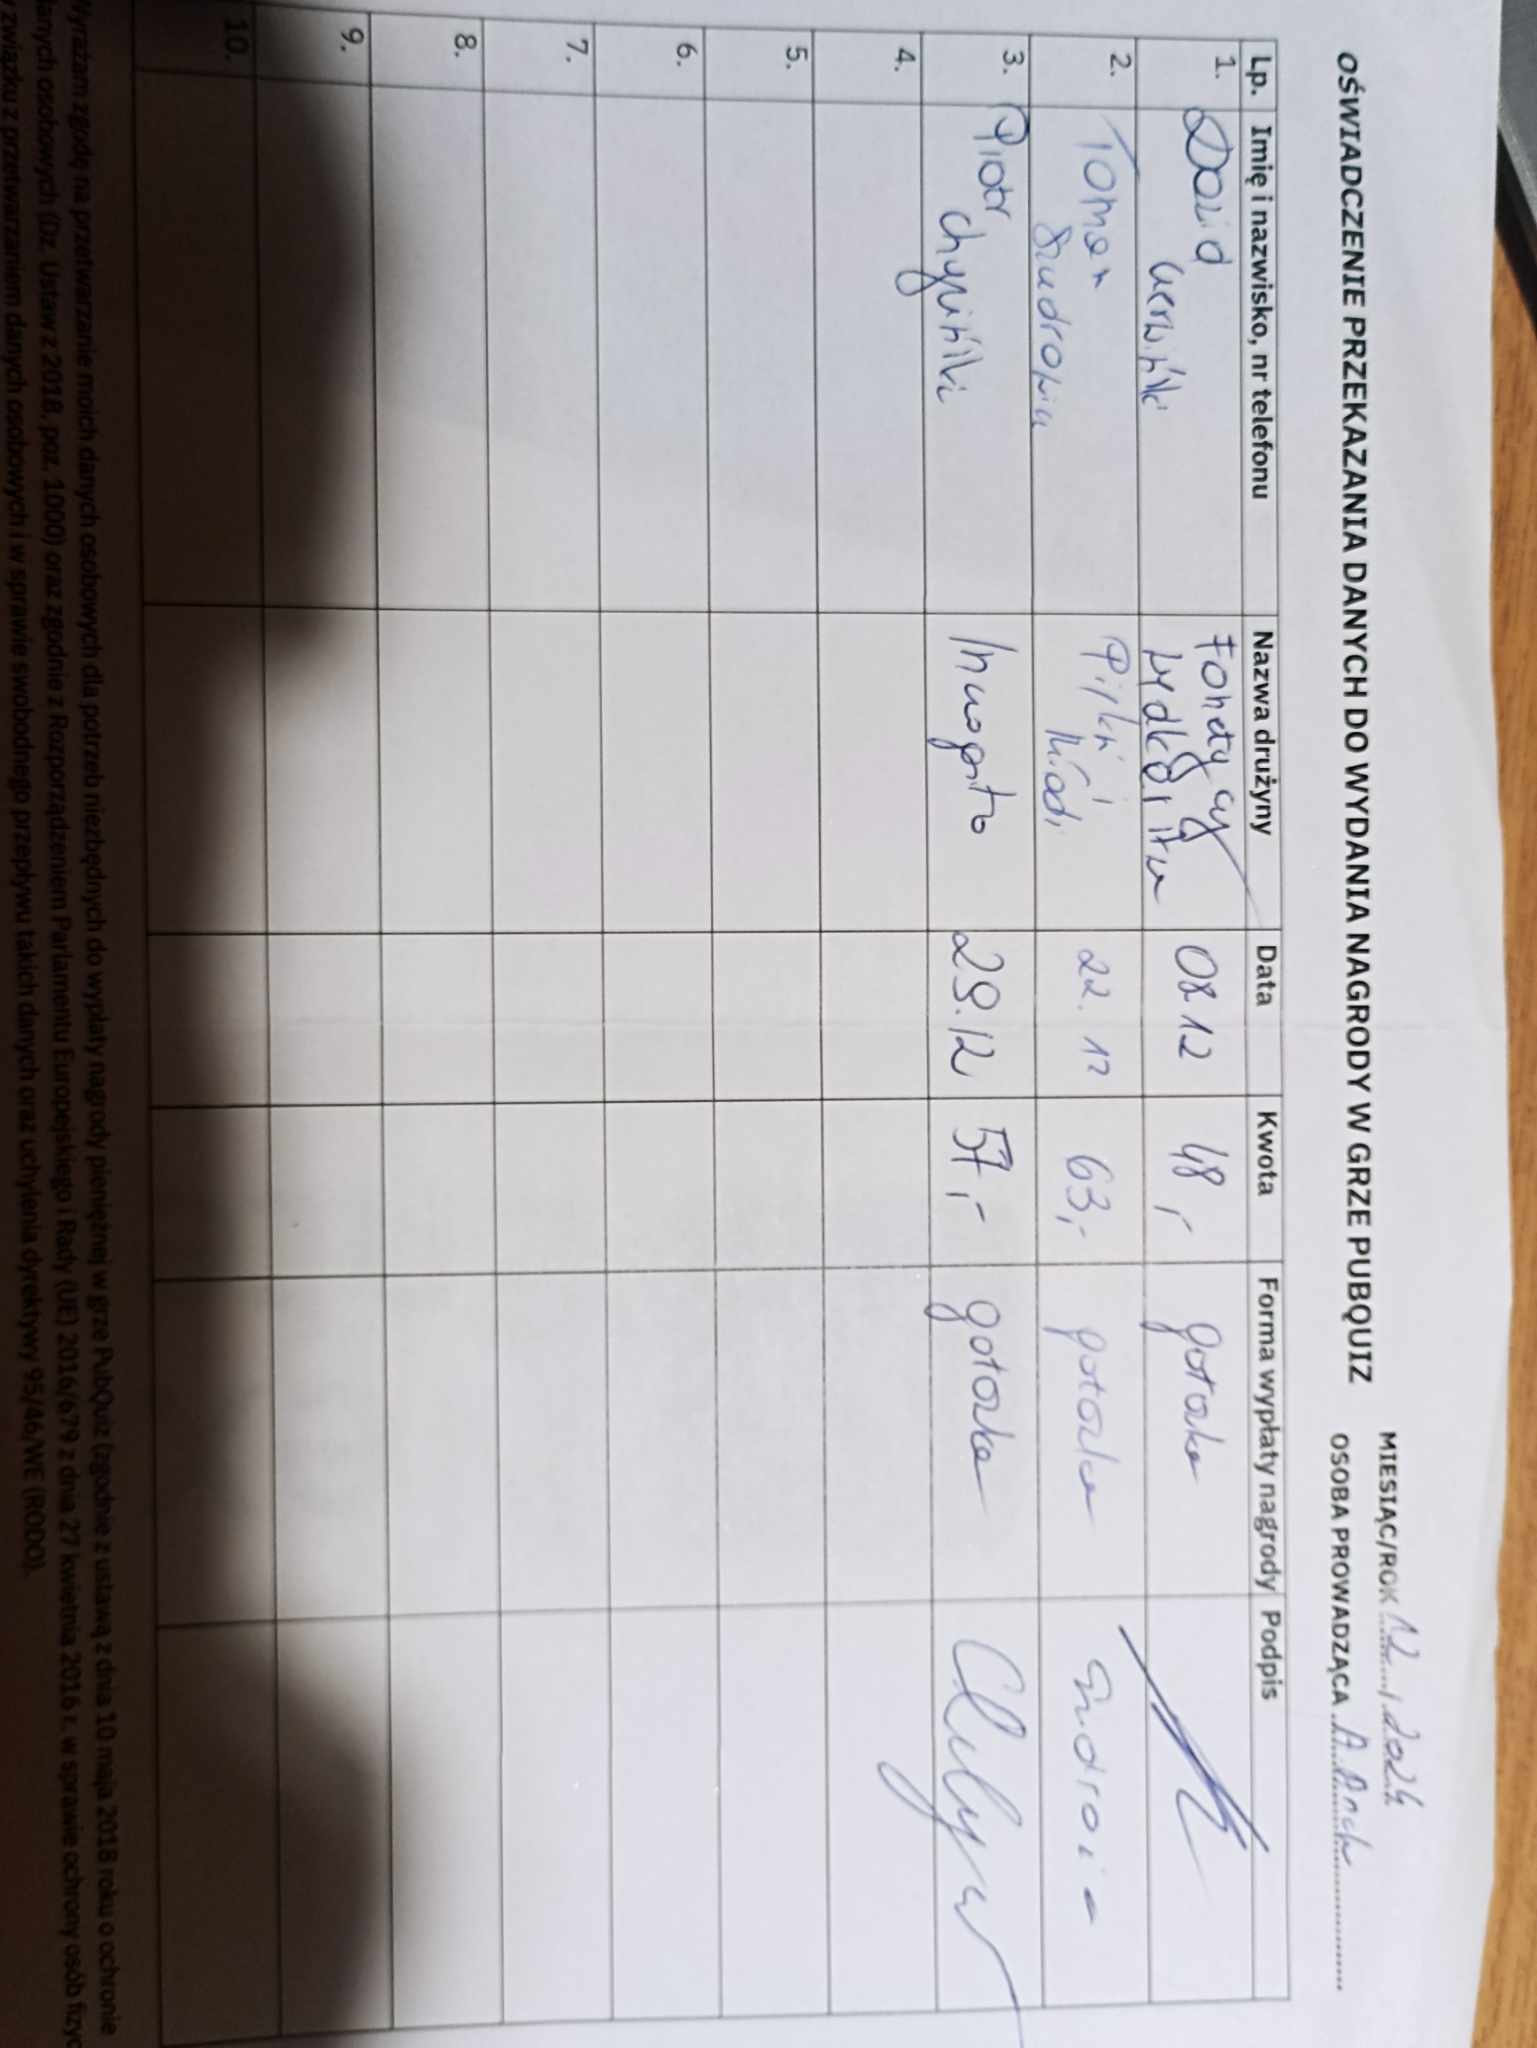 OŚWIADCZENIE PRZEKAZANIA DANYCH DO WYDANIA NAGRODY W GRZE PUBQUIZ
MIESIĄC/ROK 12 / 2024
OSOBA PROWADZĄCA A.
Lp. Imię i nazwisko, nr telefonu Nazwa drużyny Data Kwota Forma wypłaty nagrody Podpis
1. Dawid 08.12 48,- gotówka
2. Tomasz Pilśń i 22.12 63,- gotówka
3. Piotr Chyliński Incognito 29.12 57,- gotówka
4.
5.
6.
7.
8.
9.
10.
Wyrażam zgodę na przetwarzanie moich danych osobowych dla potrzeb niezbędnych do wypłaty nagrody pieniężnej w grze PubQuiz (zgodnie z ustawą z dnia 10 maja 2018 roku o ochronie
danych osobowych (Dz. Ustaw z 2018, poz. 1000) oraz zgodnie z Rozporządzeniem Parlamentu Europejskiego i Rady (UE) 2016/679 z dnia 27 kwietnia 2016 r. w sprawie ochrony osób fizyc
w związku z przetwarzaniem danych osobowych i w sprawie swobodnego przepływu takich danych oraz uchylenia dyrektywy 95/46/WE (RODO).